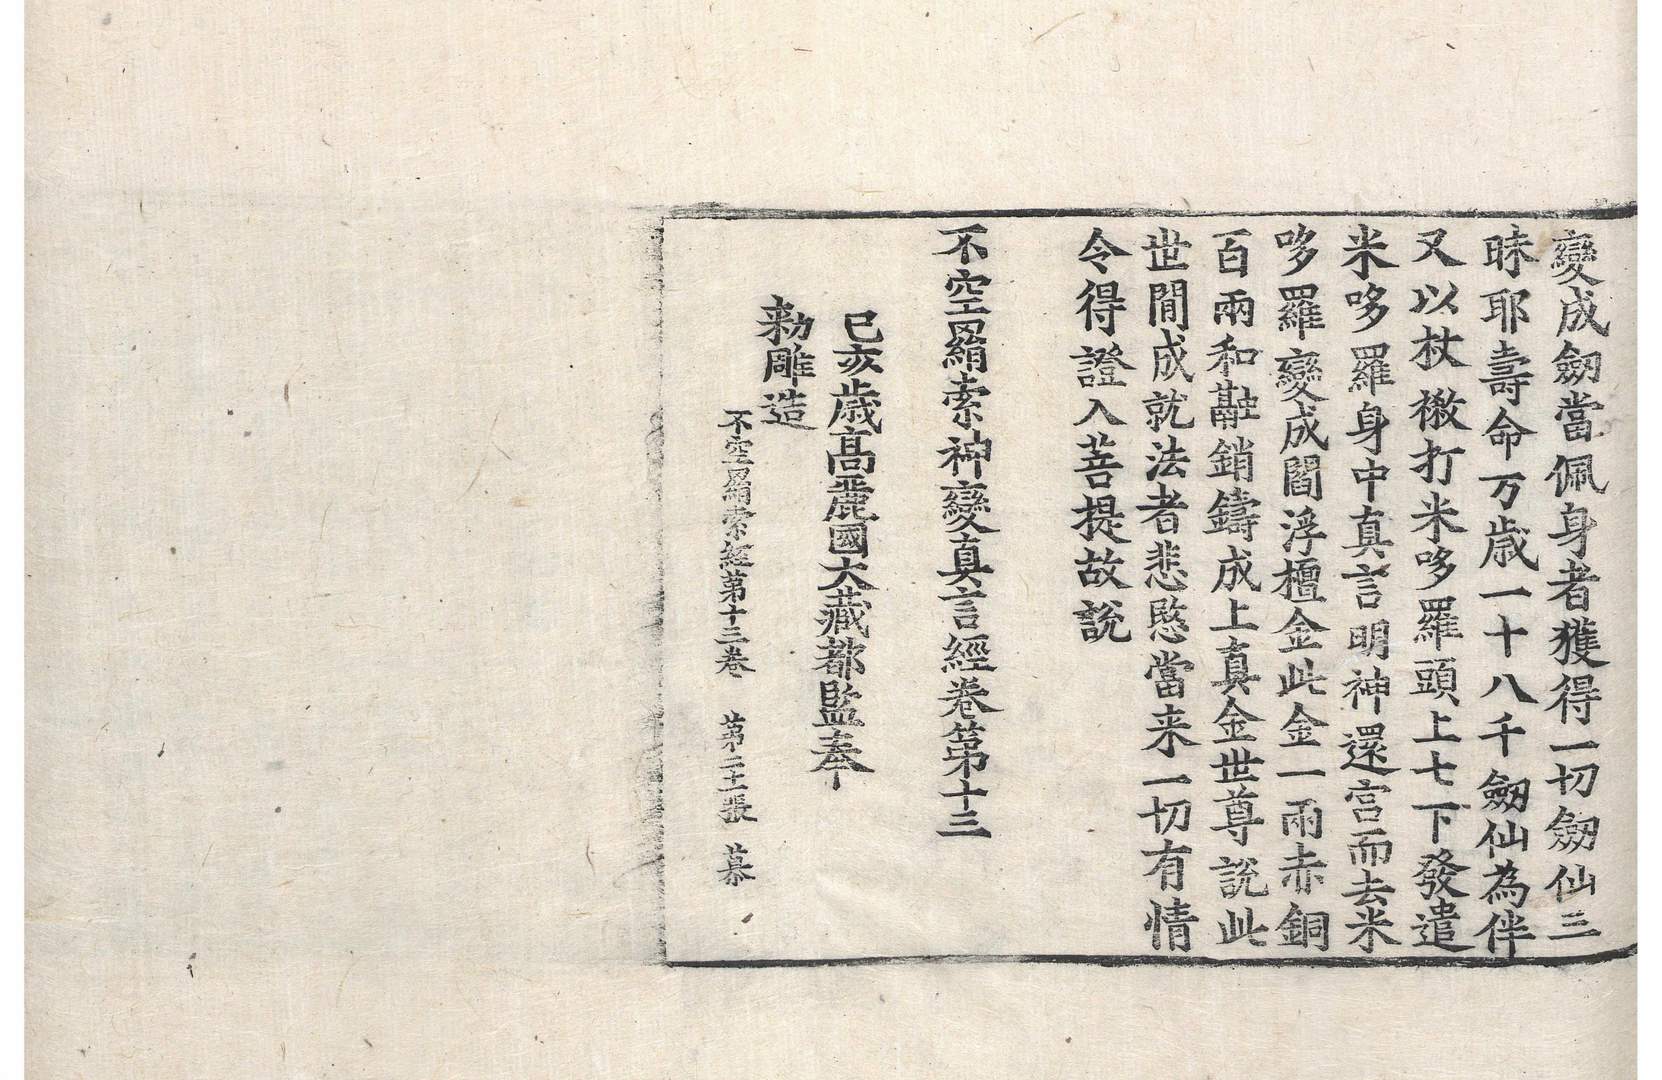 變成劒當佩身者獲得一切劒仙三
昧耶壽命万歳一十八千劒仙為伴
又以杖撽打米哆羅頭上七下發遣
米哆羅身中真言明神還宮而去米
哆羅變成閻浮檀金此金一兩赤銅
百兩和融銷鑄成上真金世尊說此
世間成就法者悲愍當来一切有情
令得證入菩提故說
不空羂索神變真言經卷第十三
己亥歳髙麗國大藏都監奉
勑雕造
不空羂索經第十三卷　第二十張　慕